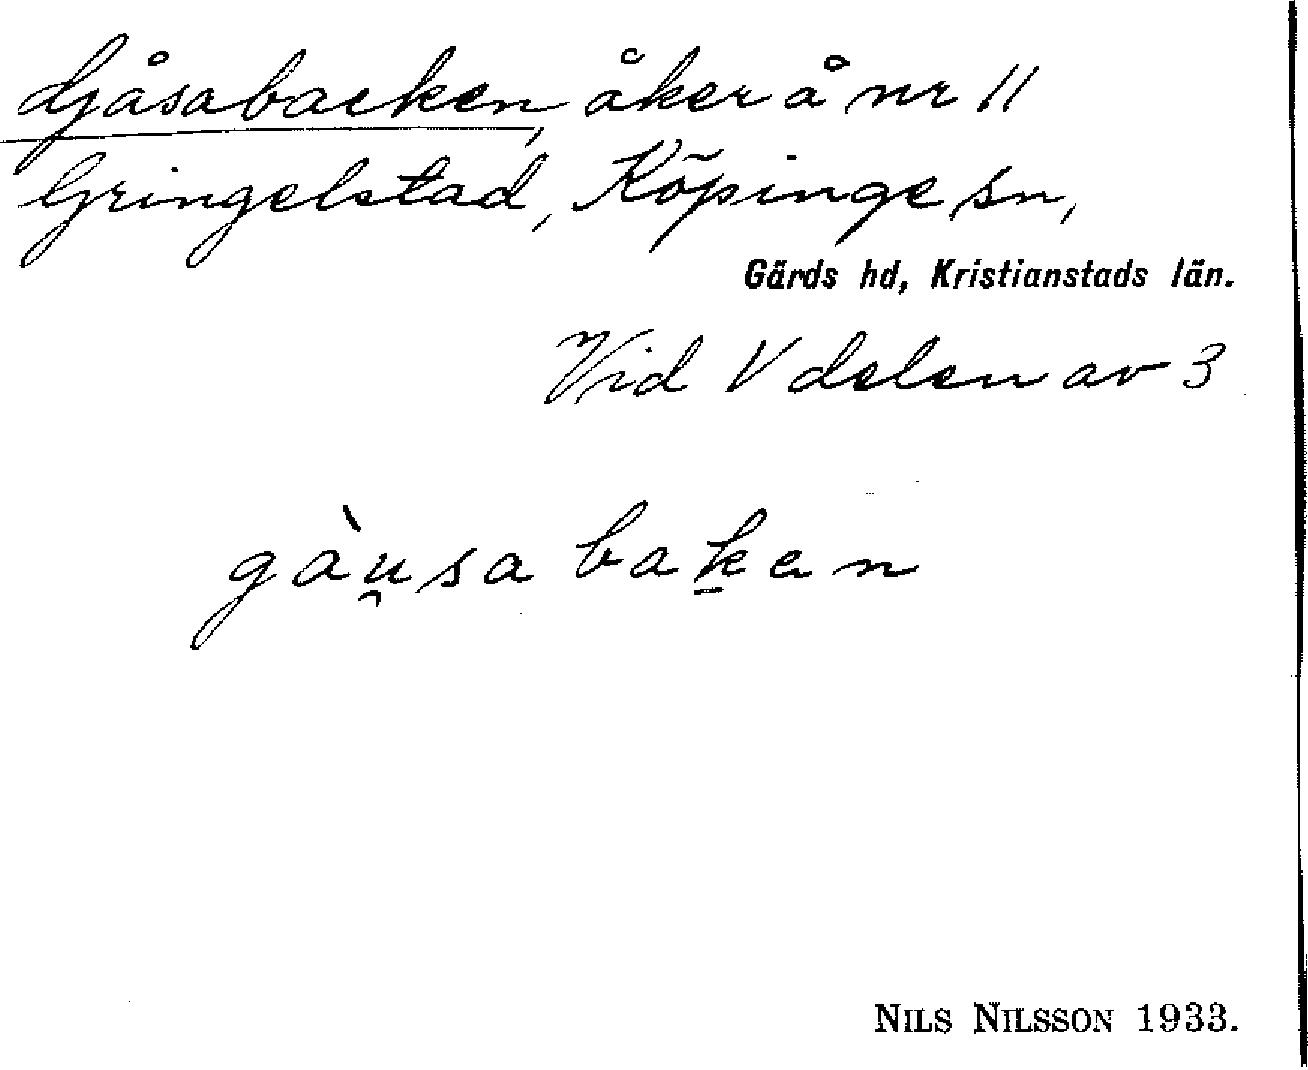 Gåsabacken, åker å nr 11
Gringelstad, Köpinge sn,
Gärds hd, Kristianstads län.
Vid V delen av 3
gàu̯sa baḵan
NILS NILSSON 1933.